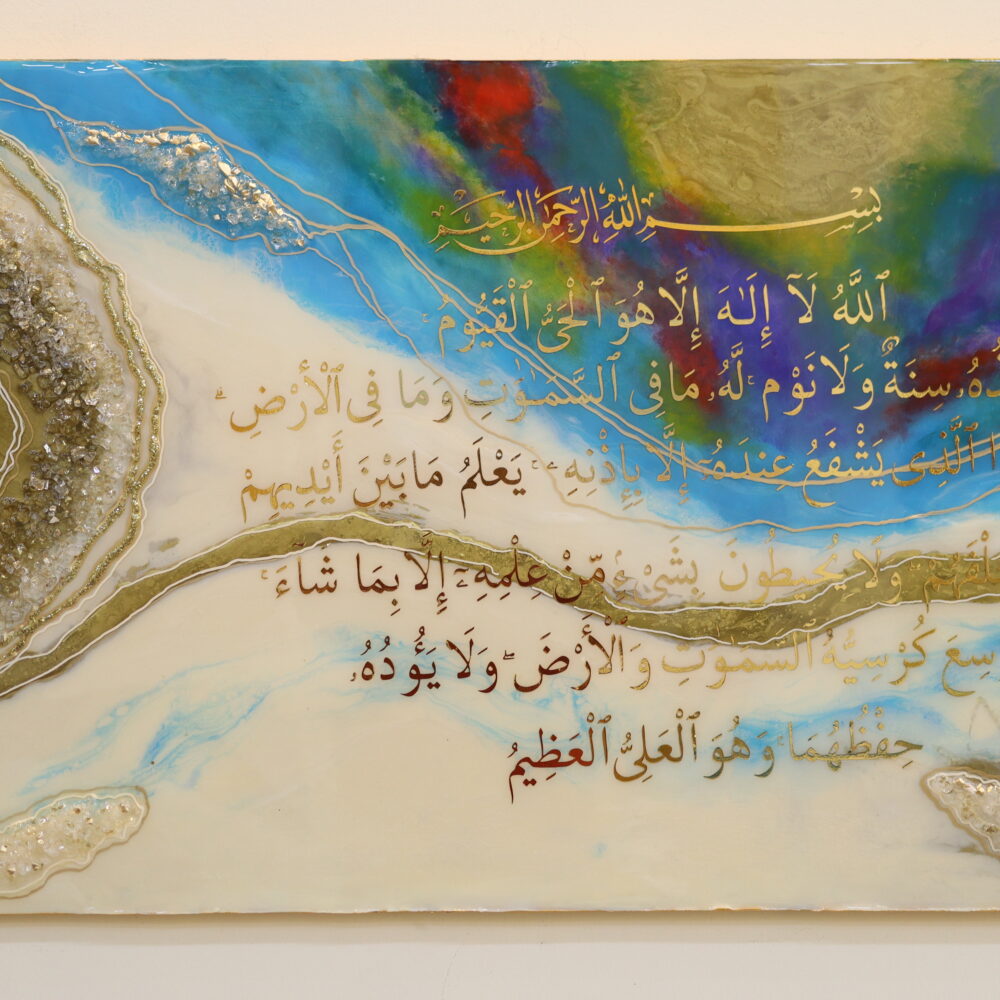 بِسْمِ اللهِ الرَّحْمٰنِ الرَّحِيْمِ
ٱللَّهُ لَآ إِلَـٰهَ إِلَّا هُوَ ٱلْحَىُّ ٱلْقَيُّومُ ۚ
سِنَةٌ وَلَا نَوْم ۚ لَّهُۥ مَا فِى ٱلسَّمَـٰوَٰتِ وَمَا فِى ٱلْأَرْضِ ۗ
ٱلَّذِى يَشْفَعُ عِندَهُۥٓ إِلَّا بِإِذْنِهِۦ ۚ يَعْلَمُ مَا بَيْنَ أَيْدِيهِمْ
وَلَا يُحِيطُونَ بِشَىْءٍ مِّنْ عِلْمِهِۦٓ إِلَّا بِمَا شَآءَ ۚ
كُرْسِيُّهُ ٱلسَّمَـٰوَٰتِ وَٱلْأَرْضَ ۖ وَلَا يَـُٔودُهُۥ
حِفْظُهُمَا ۚ وَهُوَ ٱلْعَلِىُّ ٱلْعَظِيمُ